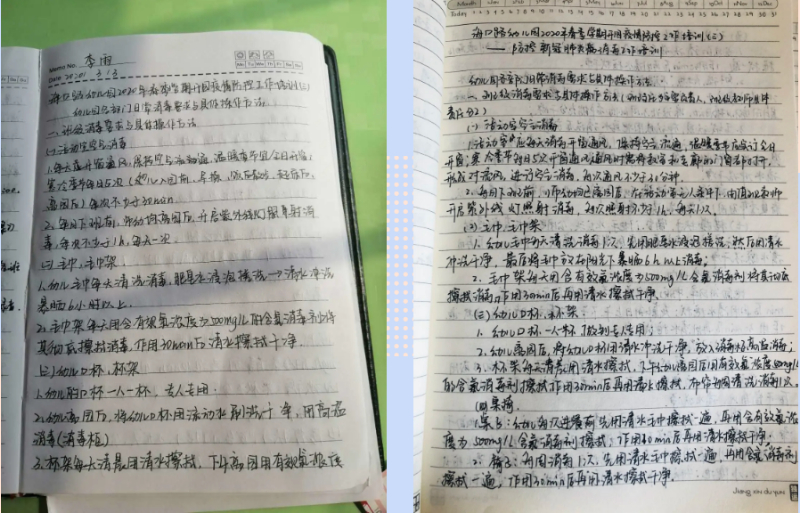 李雨
Date 2020. 3. 13
海口路幼儿园2020年春季学期开园疫情防控工作培训(二)
幼儿园各部门日常消毒要求与具体操作方法
一、班级消毒要求与具体操作方法
(一)活动室空气消毒
1.每天应开窗通风,保持空气流通,温暖季节宜全日开窗,
寒冷季节每日5次(幼儿入园前、早操、
离园后)每次不少于30min
2、每日下班前,即幼儿离园后,开启紫外线灯照射消
毒,每次不少于1h,每天一次。
(二)毛巾、毛巾架
1.幼儿毛巾每天清洗消毒,肥皂水浸泡搓洗→清水冲洗
暴晒6小时以上。
2、毛巾架每天用含有效氯浓度为500mg/L的含氯消毒剂将
其彻底擦拭消毒,作用30min后清水擦拭干净。
(三)幼儿口杯、杯架
1.幼儿的口杯一人一杯,专人专用。
2.幼儿离园后,将幼儿口杯用流动水刷洗干净,用高温
消毒(消毒柜)
3.杯架每天清晨用清水擦拭,下午离园用有效氯浓度
Today 1 2 3 4 5 6 7 8 9 10 11 12 13 14 15 16 17 18 19 20 21 22 23 24 25 26 27 28 29 30 31
海口路幼儿园2020年春季学期开园疫情防控工作培训(二)
——防控新冠肺炎病毒消毒工作培训
幼儿园各部门日常消毒要求与具体操作方法
一、班级消毒要求与具体操作方法
(一)活动室空气消毒
1.活动室应每天消毒开窗通风,保持空气流通,温暖季节应该全日
开窗;寒冷季节每日5次开窗通风
形成对流风,进行空气消毒,每次通风不少于30分钟。
2.每日下班前,即幼儿离园后,在活动室无人条件下,由值班教师
开启紫外线灯照射消毒,每次照射不少于1h,每天1次
(二)毛巾、毛巾架
1.幼儿毛巾每天清洗消毒1次,先用肥皂水浸泡搓洗,然后用清水
冲洗干净,最后将毛巾放在阳光下暴晒6h以上消毒;
2.毛巾架每天用含有效氯浓度为500mg/L含氯消毒剂将其彻底
擦拭消毒,作用30min后再用清水擦拭干净。
(三)幼儿口杯、杯架
1.幼儿口杯一人一杯,做到专人专用;
2.幼儿离园后,将幼儿口杯用清水冲洗干净,放入消毒柜高温消毒;
3.杯架每天清晨用清水擦拭,下午幼儿离园后用有效氯浓度500mg/L
的含氯消毒剂擦拭作用30min后再用清水擦拭,
(四)桌椅
1.桌子:幼儿每次进餐前先用清水毛巾擦拭一遍,再用含有效氯
浓度为500mg/L含氯消毒剂擦拭,作用30min后再用清水擦拭干净;
2.椅子:每周消毒1次,先用清水毛巾擦拭一遍,再用含氯消毒剂
擦拭一遍,作用30min后再用清水擦拭干净。